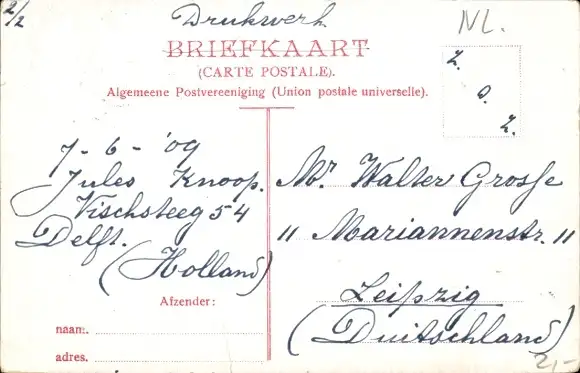 2/2
Drukwerk
NL.
BRIEFKAART
(CARTE POSTALE).
Algemeene Postvereeniging (Union postale universelle).
Z. O. Z.
7-6-'09
Jules Knoop.
Vischsteeg 54
Delft.
(Holland)
Mr. Walter Grosse
11 Mariannenstr. 11
Leipzig
(Duitschland)
Afzender:
naam.
adres.
2,-